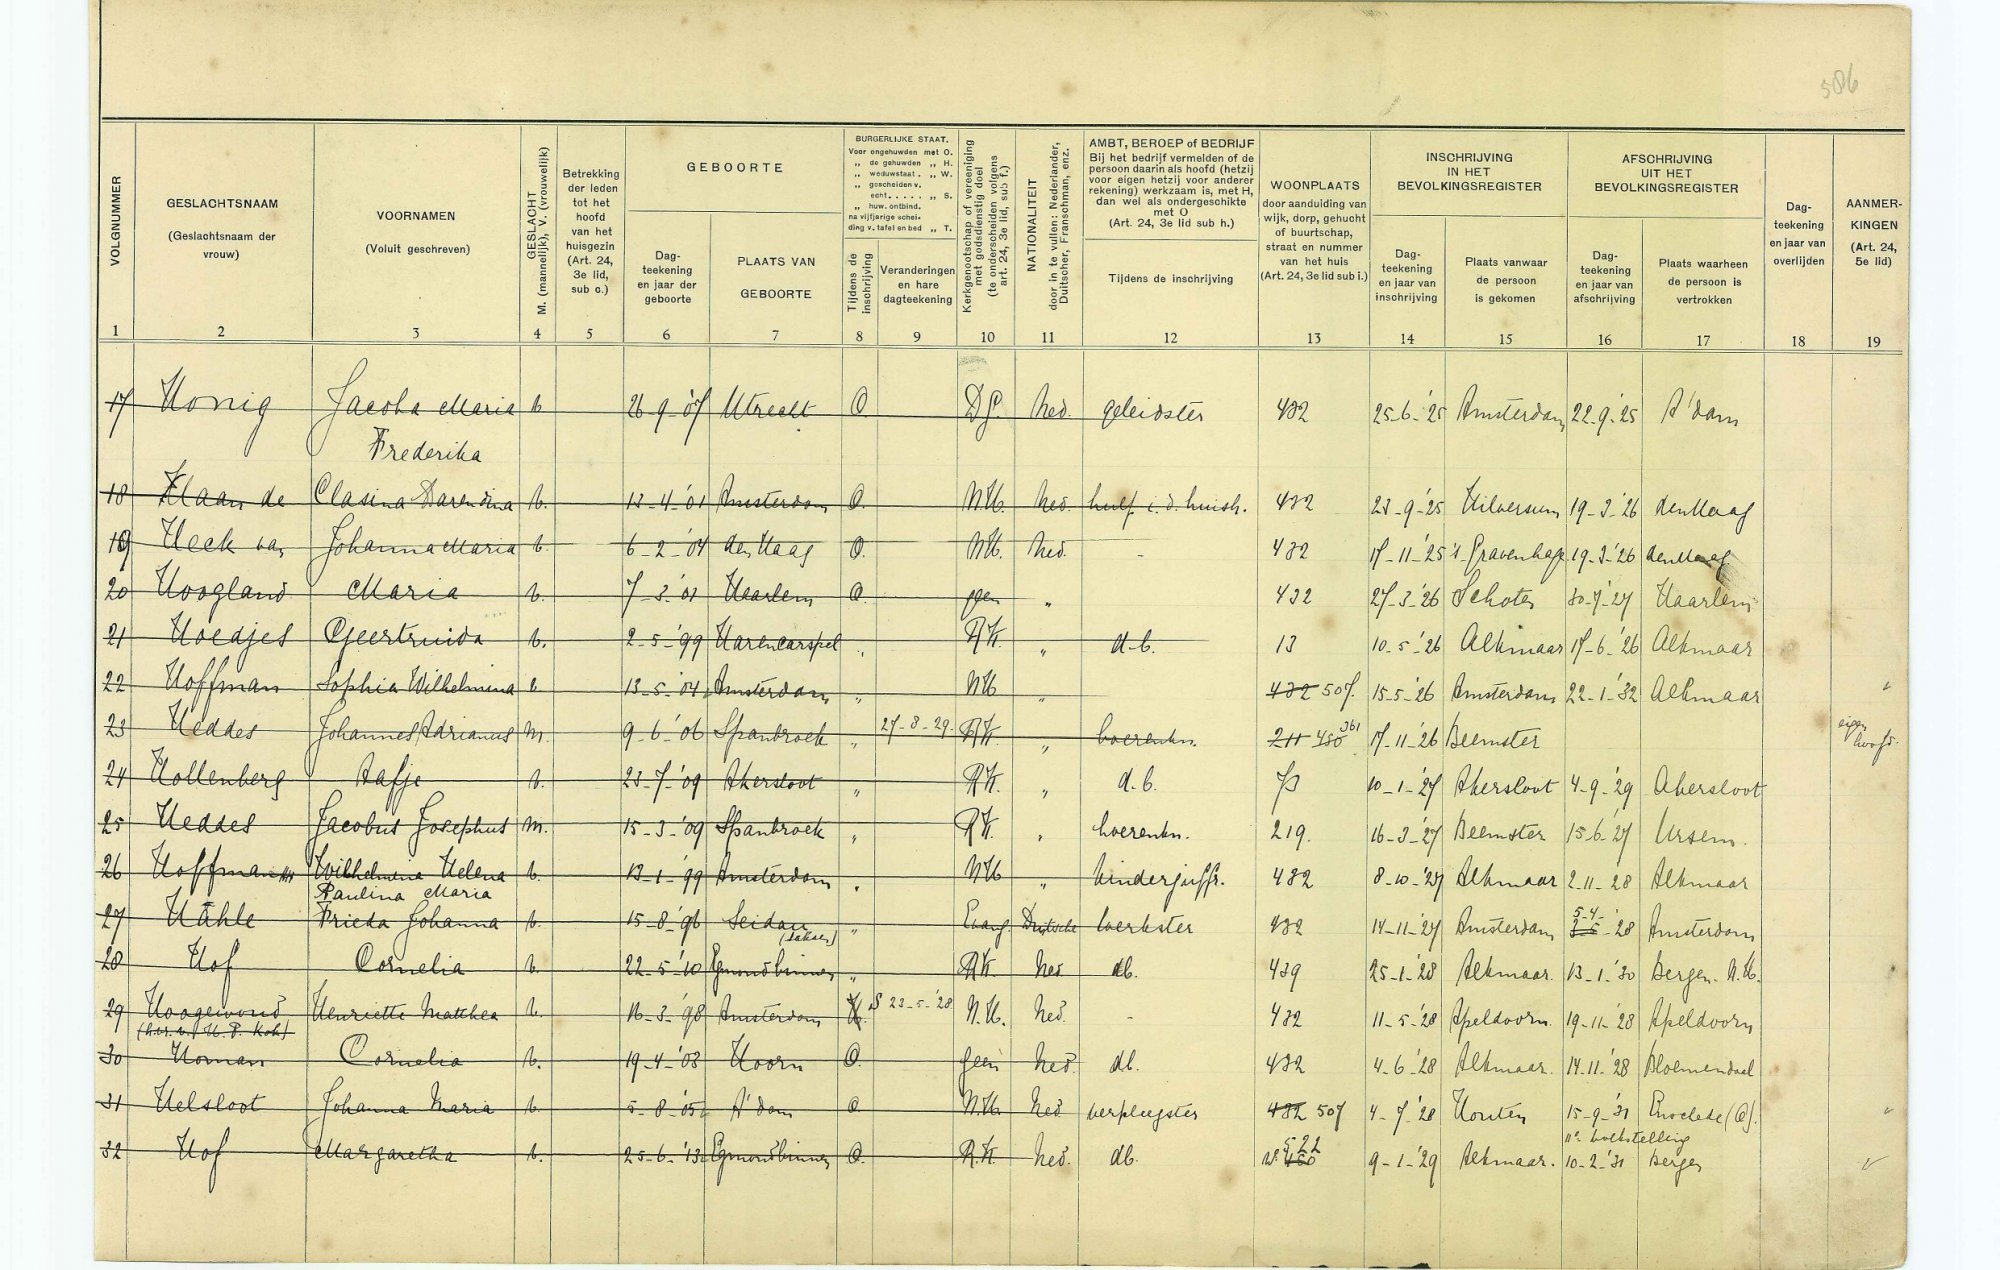 586
VOLGNUMMER
GESLACHTSNAAM
(Geslachtsnaam der
vrouw)
VOORNAMEN
(Voluit geschreven)
GESLACHT
M. (mannelijk), V. (vrouwelijk)
Betrekking
der leden
tot het
hoofd
van het
huisgezin
(Art. 24,
3e lid,
sub c.)
GEBOORTE
Dag-
teekening
en jaar der
geboorte
PLAATS VAN
GEBOORTE
BURGERLIJKE STAAT.
Voor ongehuwden met O.
„ de gehuwden „ H.
„ weduwstaat . „ W.
„ gescheiden v.
echt. . . . . „ S.
„ huw. ontbind.
na vijfjarige schei-
ding v. tafel en bed „ T.
Tijdens de
inschrijving
Veranderingen
en hare
dagteekening
Kerkgenootschap of vereeniging
met godsdienstig doel
(te onderscheiden volgens
art. 24, 3e lid, sub f.)
NATIONALITEIT
door in te vullen: Nederlander,
Duitscher, Franschman, enz.
AMBT, BEROEP of BEDRIJF
Bij het bedrijf vermelden of de
persoon daarin als hoofd (hetzij
voor eigen hetzij voor anderer
rekening) werkzaam is, met H,
dan wel als ondergeschikte
met O
(Art. 24, 3e lid sub h.)
Tijdens de inschrijving
WOONPLAATS
door aanduiding van
wijk, dorp, gehucht
of buurtschap,
straat en nummer
van het huis
(Art. 24, 3e lid sub i.)
INSCHRIJVING
IN HET
BEVOLKINGSREGISTER
Dag-
teekening
en jaar van
inschrijving
Plaats vanwaar
de persoon
is gekomen
AFSCHRIJVING
UIT HET
BEVOLKINGSREGISTER
Dag-
teekening
en jaar van
afschrijving
Plaats waarheen
de persoon is
vertrokken
Dag-
teekening
en jaar van
overlijden
AANMER-
KINGEN
(Art. 24,
5e lid)
1 2 3 4 5 6 7 8 9 10 11 12 13 14 15 16 17 18 19
17 Honig Jacoba Maria V 26-9-'07 Utrecht O D.G. Ned. geleidster 432 25-6-'25 Amsterdam 22-9-'25 A'dam
Frederika
18 Haan de Clasina Barendina V. 13-4-'01 Amsterdam O. N.H. Ned. hulp i.d. huish. 432 23-9-'25 Hilversum 19-3-'26 den Haag
19 Heck van Johanna Maria V. 6-2-'04 den Haag O. N.H. Ned. - 432 17-11-'25 's Gravenhage 19-3-'26 den Haag
20 Hoogland Maria V. 7-3-'01 Haarlem O. geen „ 432 27-3-'26 Schoten 30-7-'27 Haarlem
21 Hoedjes Geertruida V. 2-5-'99 Harencarspel „ R.K. „ d.b. 13 10-5-'26 Alkmaar 17-6-'26 Alkmaar
22 Hoffman Sophia Wilhelmina V 13-5-'04 Amsterdam „ N.H „ 432 507. 15-5-'26 Amsterdam 22-1-'32 Alkmaar
23 Heddes Johannes Adrianus M. 9-6-'06 Spanbroek „ 27-8-29. R.K. „ boerenkn. 211 450 361 17-11-'26 Beemster eigen hoofd.
24 Hollenberg Aafje V. 23-7-'09 Akersloot „ R.K. „ d.b. 10-1-'27 Akersloot 4-9-'29 Akersloot
25 Heddes Jacobus Josephus M. 15-3-'09 Spanbroek „ R.K. „ boerenkn. 219. 16-3-'27 Beemster 15-6-'27 Ursem.
26 Hoffman Wilhelmina Helena V. 13-1-'99 Amsterdam „ N.H „ kinderjuffr. 432 8-10-'27 Alkmaar 2-11-'28 Alkmaar
Paulina Maria
27 Hähle Frieda Johanna V. 15-8-'96 Seidau „ Evang. Duitsche werkster 432 14-11-'27 Amsterdam 5-4-'28 Amsterdam
(Saksen)
28 Hof Cornelia V. 22-5-'10 Egmondbinnen „ R.K. Ned db. 439 25-1-'28 Alkmaar. 13-1-'30 Bergen N.H.
29 Hoogewoud Henriette Matthea V. 16-3-'98 Amsterdam H. S 23-5-'28 N.H. Ned. - 432 11-5-'28 Apeldoorn. 19-11-'28 Apeldoorn
(hvr. v. H. P. Kok)
30 Homan Cornelia V. 19-4-'03 Hoorn O. geen Ned. db. 432 4-6-'28 Alkmaar. 14-11-'28 Bloemendaal
31 Helsloot Johanna Maria V. 5-8-'05 A'dam O. N.H. Ned verpleegster 432 507 4-7-'28 Houten 15-9-'31 Enschede (O).
n.a. volkstelling
32 Hof Margaretha V. 25-6-'13 Egmondbinnen O. R.K. Ned. db. 450 522 9-1-'29 Alkmaar. 10-2-'31 Bergen